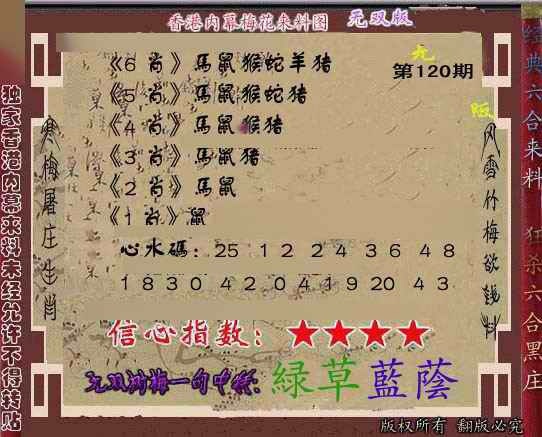 香港内幕梅花来料图 无双版
《6 肖》馬鼠猴蛇羊猪
第120期
《5 肖》馬鼠猴蛇猪
《4 肖》馬鼠猴猪
《3 肖》馬鼠猪
《2 肖》馬鼠
《1 肖》鼠
心水碼: 25 12 24 36 48
18 30 42 04 19 20 43
信心指数: ★★★★
无双 梅一句中特: 綠草藍蔭
版权所有 翻版必究
独家香港内幕来料未经允许不得转贴
寒梅屠庄生肖
风雪竹梅欲钱料
无
版
经典六合来料 狂杀六合黑庄